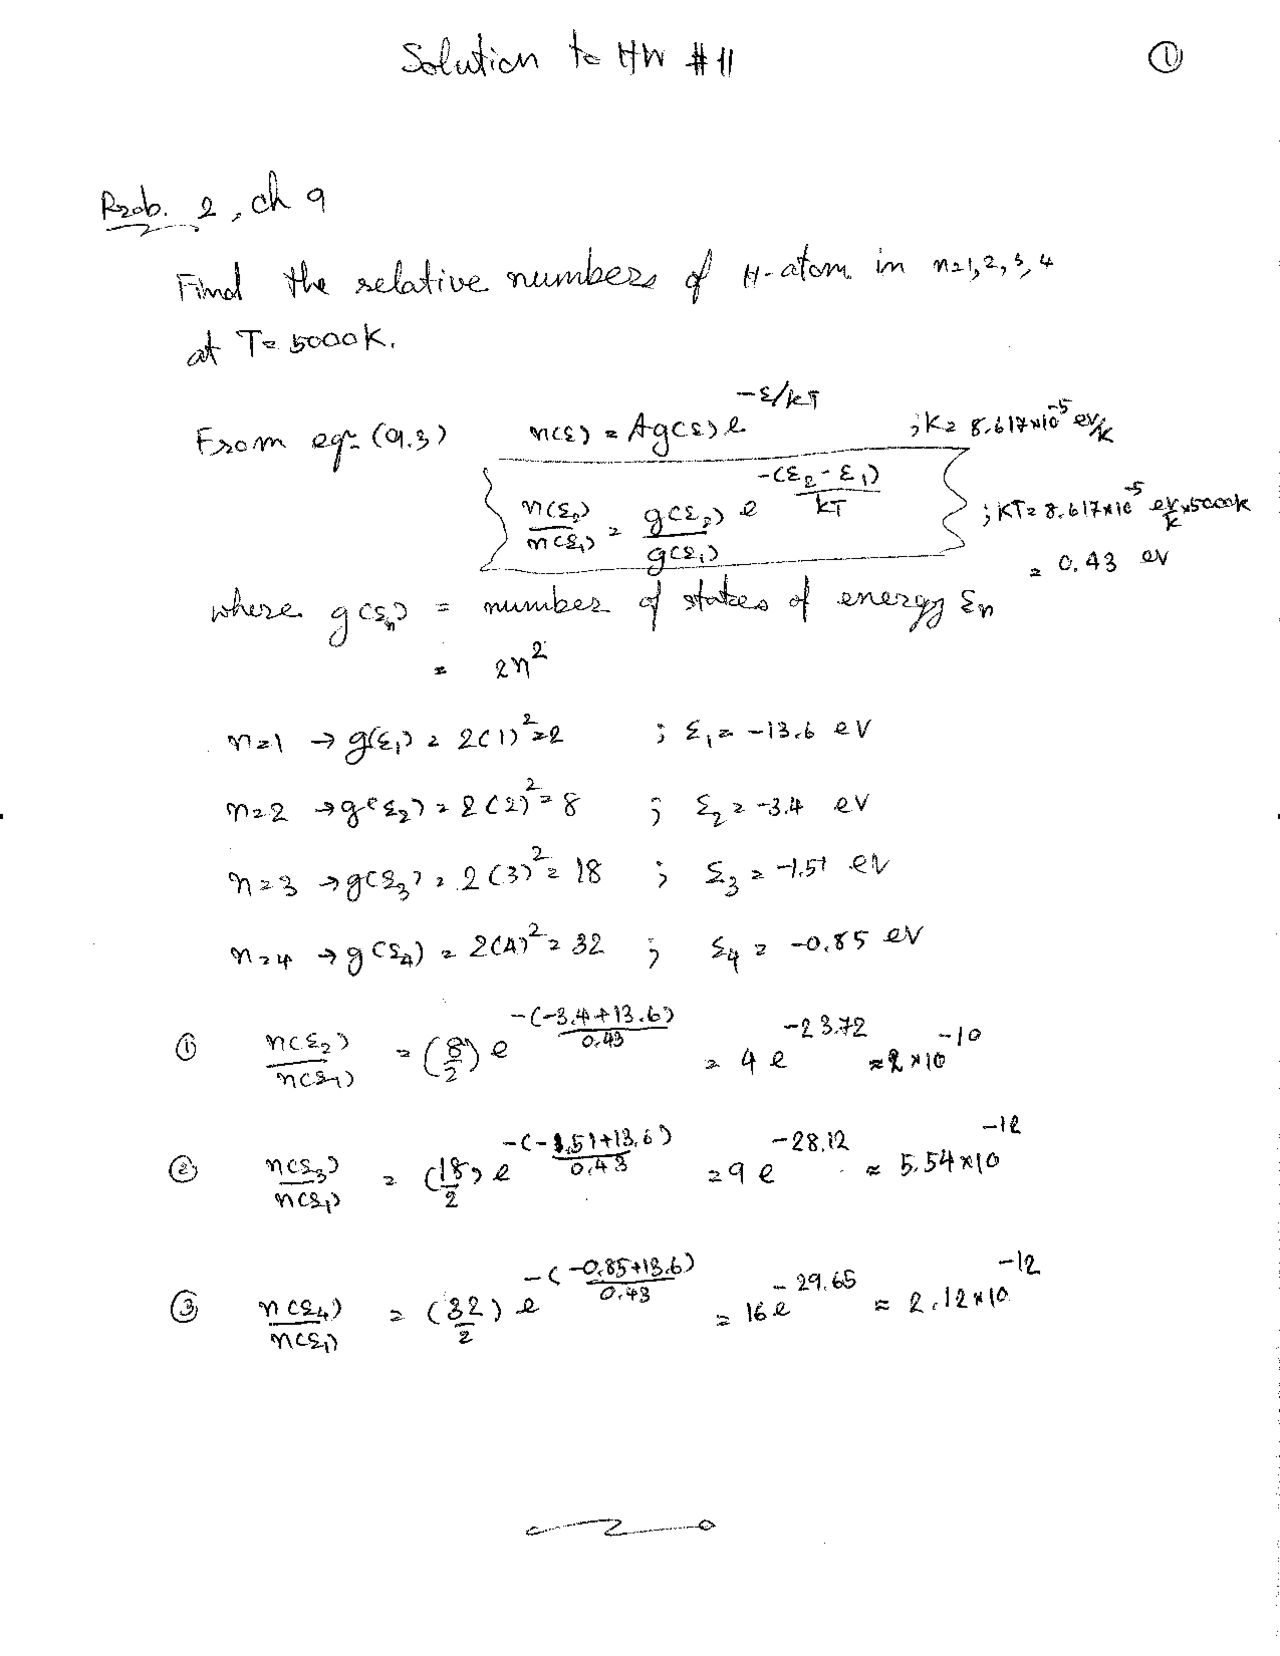 Solution to HW #11
①
Prob. 2, ch 9
Find the relative numbers of H-atom in n=1,2,3,4
at T= 5000K.
From eqn (9.3) n(ε) = Ag(ε)e^{-ε/kT} ; k= 8.617×10^{-5} ev/k
n(ε₂)/n(ε₁) = g(ε₂)/g(ε₁) e^{-(ε₂-ε₁)/kT} ; kT= 8.617×10^{-5} ev/k ×5000k
= 0.43 ev
where g(εₙ) = number of states of energy εₙ
= 2n²
n=1 → g(ε₁) = 2(1)²=2 ; ε₁= -13.6 eV
n=2 → g(ε₂) = 2(2)²= 8 ; ε₂ = -3.4 eV
n=3 → g(ε₃) = 2(3)²= 18 ; ε₃ = -1.51 eV
n=4 → g(ε₄) = 2(4)²= 32 ; ε₄ = -0.85 eV
① n(ε₂)/n(ε₁) = (8/2) e^{-(-3.4+13.6)/0.43} = 4 e^{-23.72} ≈ 2×10^{-10}
② n(ε₃)/n(ε₁) = (18/2) e^{-(-1.51+13.6)/0.43} = 9 e^{-28.12} ≈ 5.54×10^{-12}
③ n(ε₄)/n(ε₁) = (32/2) e^{-(-0.85+13.6)/0.43} = 16 e^{-29.65} ≈ 2.12×10^{-12}